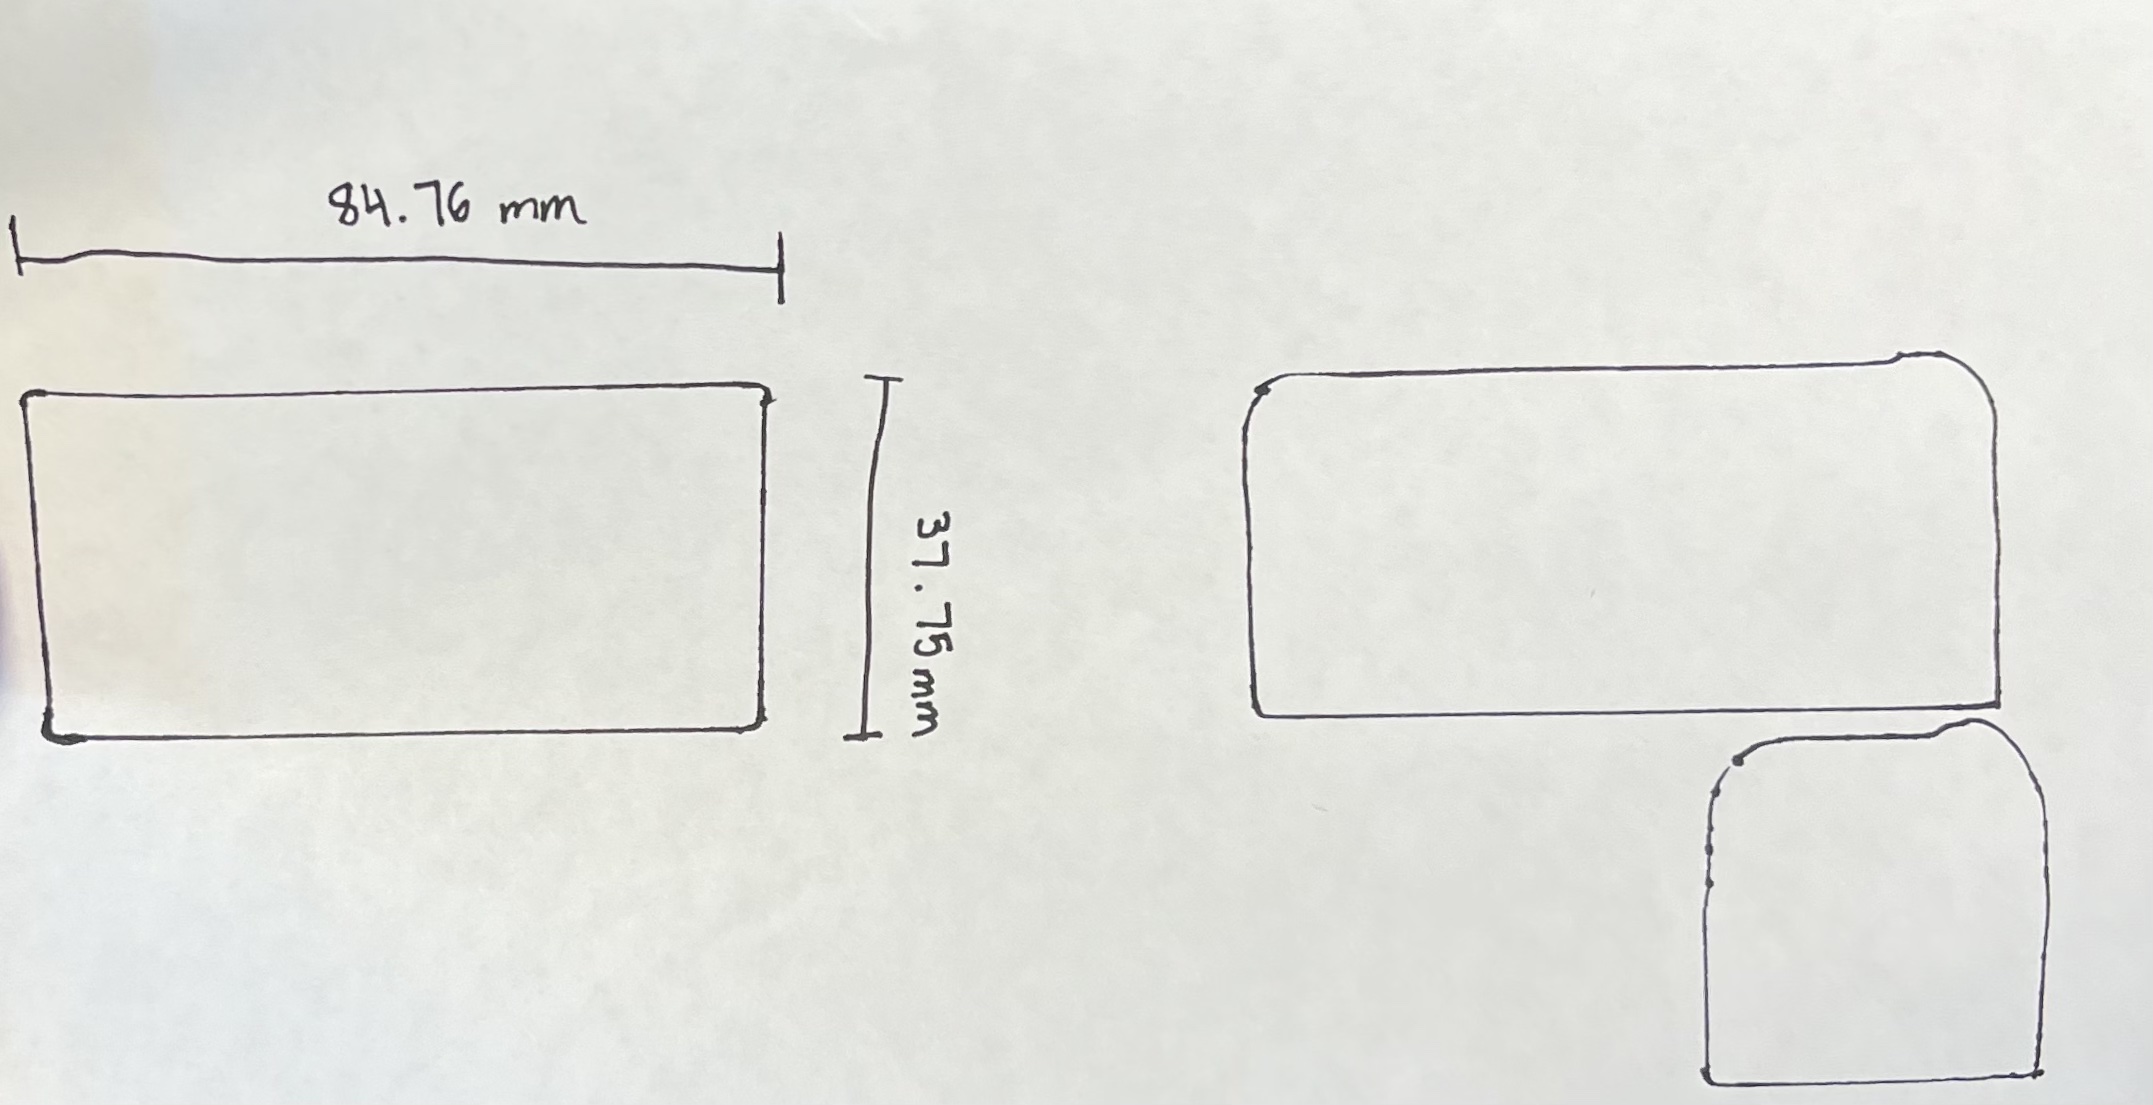 84.76 mm
37.75mm